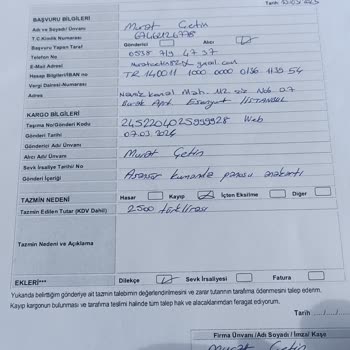 Tarih
BAŞVURU BİLGİLERİ
Adı ve Soyadı/ Ünvanı Murat Çetin
T.C.Kimlik Numarası
Başvuru Yapan Taraf Gönderici Alıcı
Telefon No 0538 719 47 37
E-Mail Adresi
Hesap Bilgileri/IBAN no
Vergi Dairesi-Numarası
Adres Namık kemal Mah.
KARGO BİLGİLERİ
Taşıma No/Gönderi Kodu Web
Gönderi Tarihi 07.03.2024
Gönderici Adı/ Ünvanı
Alıcı Adı/ Ünvanı Murat Çetin
Sevk İrsaliye Tarihi/ No
Gönderi İçeriği Asansör kumanda panosu anakartı
TAZMİN NEDENİ Hasar Kayıp İçten Eksilme Diğer
Tazmin Edilen Tutar (KDV Dahil) 2500 türk lirası
Tazmin Nedeni ve Açıklama
EKLERİ*** Dilekçe Sevk İrsaliyesi Fatura
Yukarıda belirttiğim gönderiye ait tazmin talebimin değerlendirilmesini ve zarar tutarının tarafıma ödenmesini talep ederim.
Kayıp kargonun bulunması ve tarafıma teslimi halinde tüm talep hak ve alacaklarımdan feragat ediyorum.
Tarih ..../..../....
Firma Ünvanı /Adı Soyadı / İmza/ Kaşe
Murat Çetin